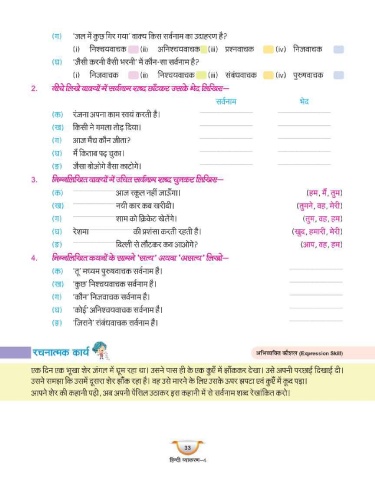 (ग) 'जल में कुछ गिर गया' वाक्य किस सर्वनाम का उदाहरण है?
(i) निश्चयवाचक (ii) अनिश्चयवाचक (iii) प्रश्नवाचक (iv) निजवाचक
(घ) 'जैसी करनी वैसी भरनी' में कौन-सा सर्वनाम है?
(i) निजवाचक (ii) निश्चयवाचक (iii) संबंधवाचक (iv) पुरुषवाचक
2. नीचे लिखे वाक्यों में सर्वनाम शब्द छाँटकर उसके भेद लिखिए—
सर्वनाम भेद
(क) रंजना अपना काम स्वयं करती है।
(ख) किसी ने गमला तोड़ दिया।
(ग) आज मैच कौन जीता?
(घ) मैं किताब पढ़ चुका।
(ङ) जैसा बोओगे वैसा काटोगे।
3. निम्नलिखित वाक्यों में उचित सर्वनाम शब्द चुनकर लिखिए—
(क) आज स्कूल नहीं जाऊँगा। (हम, मैं, तुम)
(ख) नयी कार कब खरीदी। (तुमने, वह, मेरी)
(ग) शाम को क्रिकेट खेलेंगे। (तुम, वह, हम)
(घ) रेशमा की प्रशंसा करती रहती है। (खुद, हमारी, मेरी)
(ङ) दिल्ली से लौटकर कब आओगे? (आप, वह, हम)
4. निम्नलिखित कथनों के सामने 'सत्य' अथवा 'असत्य' लिखो—
(क) 'तू' मध्यम पुरुषवाचक सर्वनाम है।
(ख) 'कुछ' निश्चयवाचक सर्वनाम है।
(ग) 'कौन' निजवाचक सर्वनाम है।
(घ) 'कोई' अनिश्चयवाचक सर्वनाम है।
(ङ) 'जिसने' संबंधवाचक सर्वनाम है।
रचनात्मक कार्य अभिव्यक्ति कौशल (Expression Skill)
एक दिन एक भूखा शेर जंगल में घूम रहा था। उसने पास ही के एक कुएँ में झाँककर देखा। उसे अपनी परछाई दिखाई दी।
उसने समझा कि उसमें दूसरा शेर झाँक रहा है। वह उसे मारने के लिए उसके ऊपर झपटा एवं कुएँ में कूद पड़ा।
आपने शेर की कहानी पढ़ी, अब अपनी पेंसिल उठाकर इस कहानी में से सर्वनाम शब्द रेखांकित करो।
33
हिन्दी व्याकरण